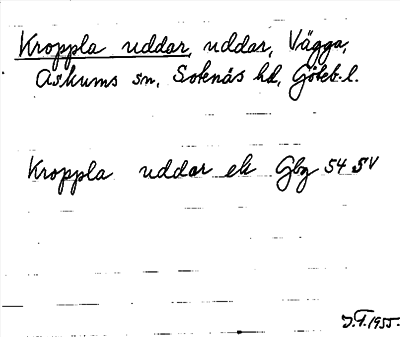 Kroppla uddar, uddar, Vägga,
Askums sn, Sotenäs hd, Göteb. l.
Kroppla uddar ek Gbg 54 SV
J.T. 1955.